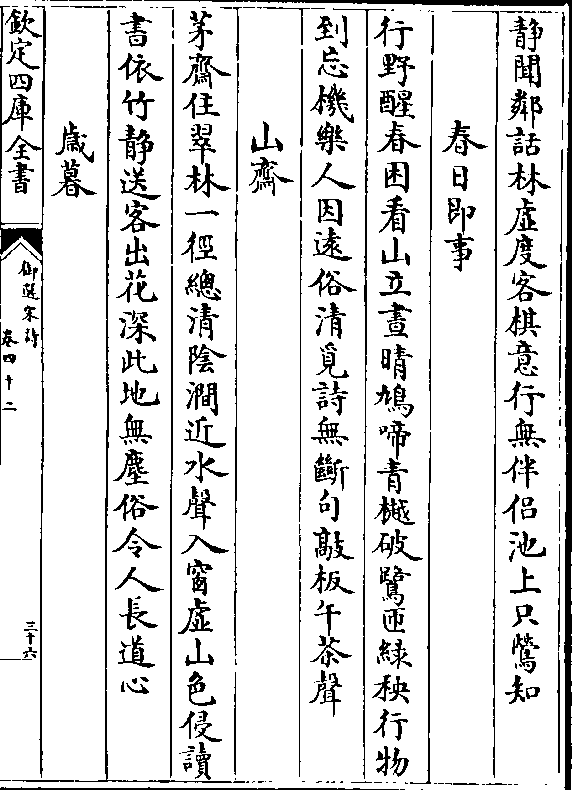 静聞鄰話林虛度客棋意行無伴侣池上只鶯知
春日即事
行野醒春困看山立晝晴鳩啼青樾破鷺匝緑秧行物
到忘機樂人因遠俗清覓詩無斷句敲板午茶聲
山齋
茅齋住翠林一徑總清陰澗近水聲入窗虛山色侵讀
書依竹静送客出花深此地無塵俗令人長道心
歲暮
欽定四庫全書
御選宋詩
卷四十二
三十六